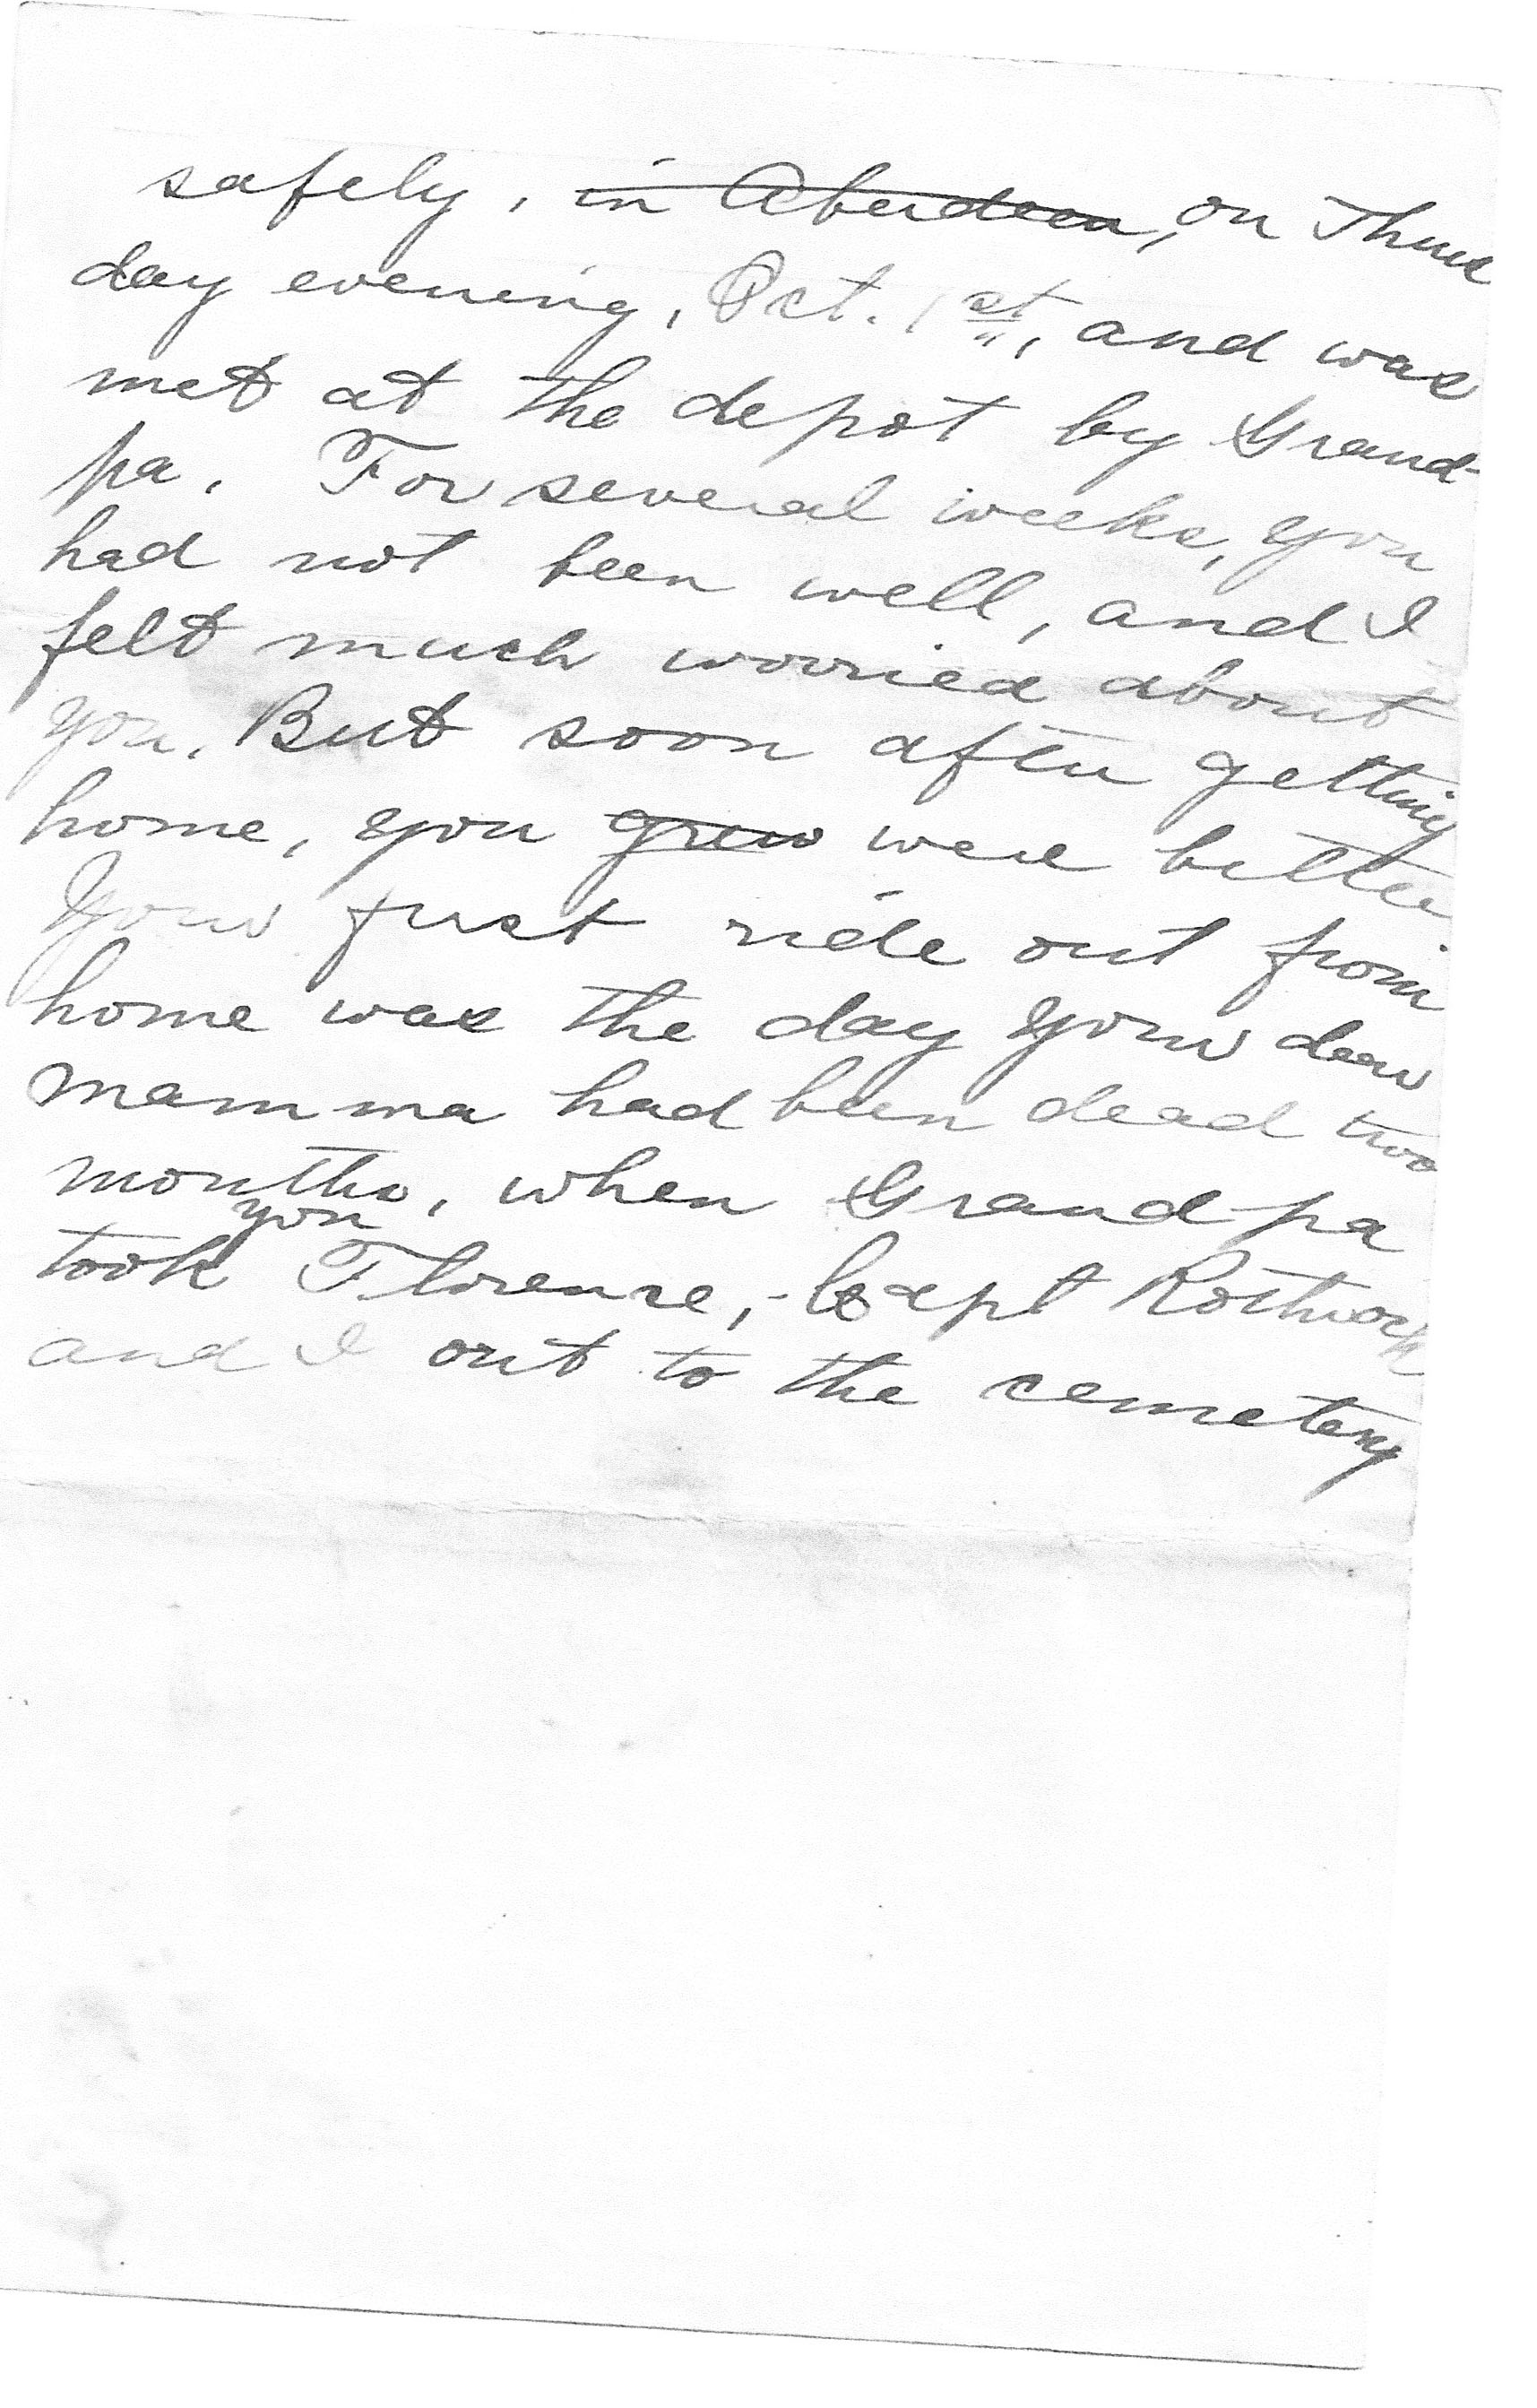 safely, in Aberdeen, on Thurs
day evening, Oct. 1st, and was
met at the depot by Grand-
pa. For several weeks, you
had not been well, and I
felt much worried about
you. But soon after getting
home, you grew were better
Your first ride out from
home was the day your dear
mamma had been dead two
months, when Grand-pa
took you Florence, Capt
and I out to the cemetery